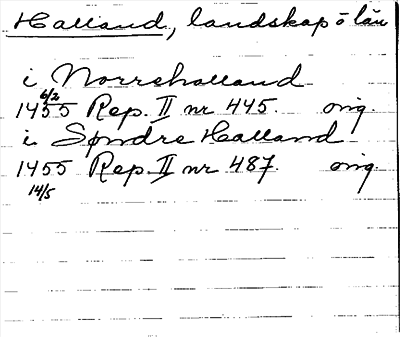 Halland, landskap o län
i Norrehalland
6/2
1455 Rep. II nr 445. orig.
i Søndre Halland
1455 Rep. II nr 487. orig.
14/5